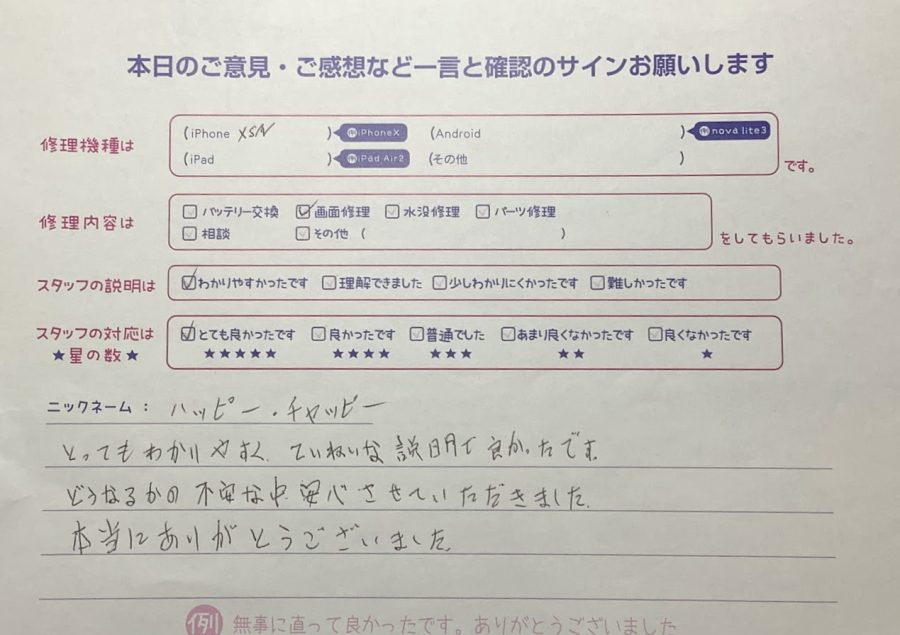 本日のご意見・ご感想など一言と確認のサインお願いします
修理機種は (iPhone ) iPhoneX (Android ) nova lite3
(iPad ) iPad Air2 (その他 ) です。
修理内容は バッテリー交換 画面修理 水没修理 パーツ修理
相談 その他 ( ) をしてもらいました。
スタッフの説明は わかりやすかったです 理解できました 少しわかりにくかったです 難しかったです
スタッフの対応は とても良かったです 良かったです 普通でした あまり良くなかったです 良くなかったです
★星の数★ ★★★★★ ★★★★ ★★★ ★★ ★
ニックネーム： ハッピー・チャッピー
とってもわかりやすく、ていねいな説明で良かったです。
どうなるかの不安な中、安心させていただきました。
本当にありがとうございました。
例 無事に直って良かったです。ありがとうございました